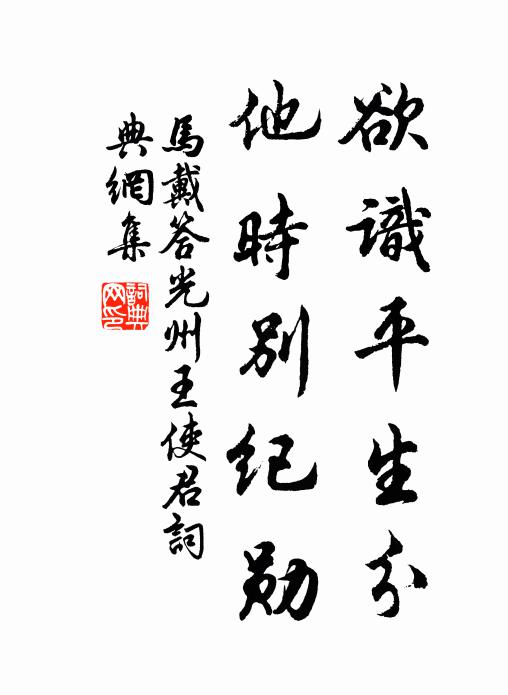 欲識平生分
他時别纪勋
馬戴答光州王使君詞
典網集
詞典網印